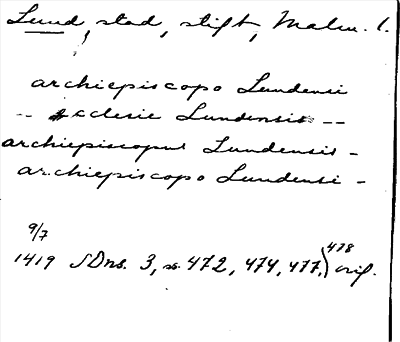 Lund, stad, stift, Malm. l.
archiepiscopo Lundensi
-- ecclesie Lundensis --
archiepiscopus Lundensis -
archiepiscopo Lundensi -
9/7
1419 SDns. 3, s. 472, 474, 477, 478 orig.